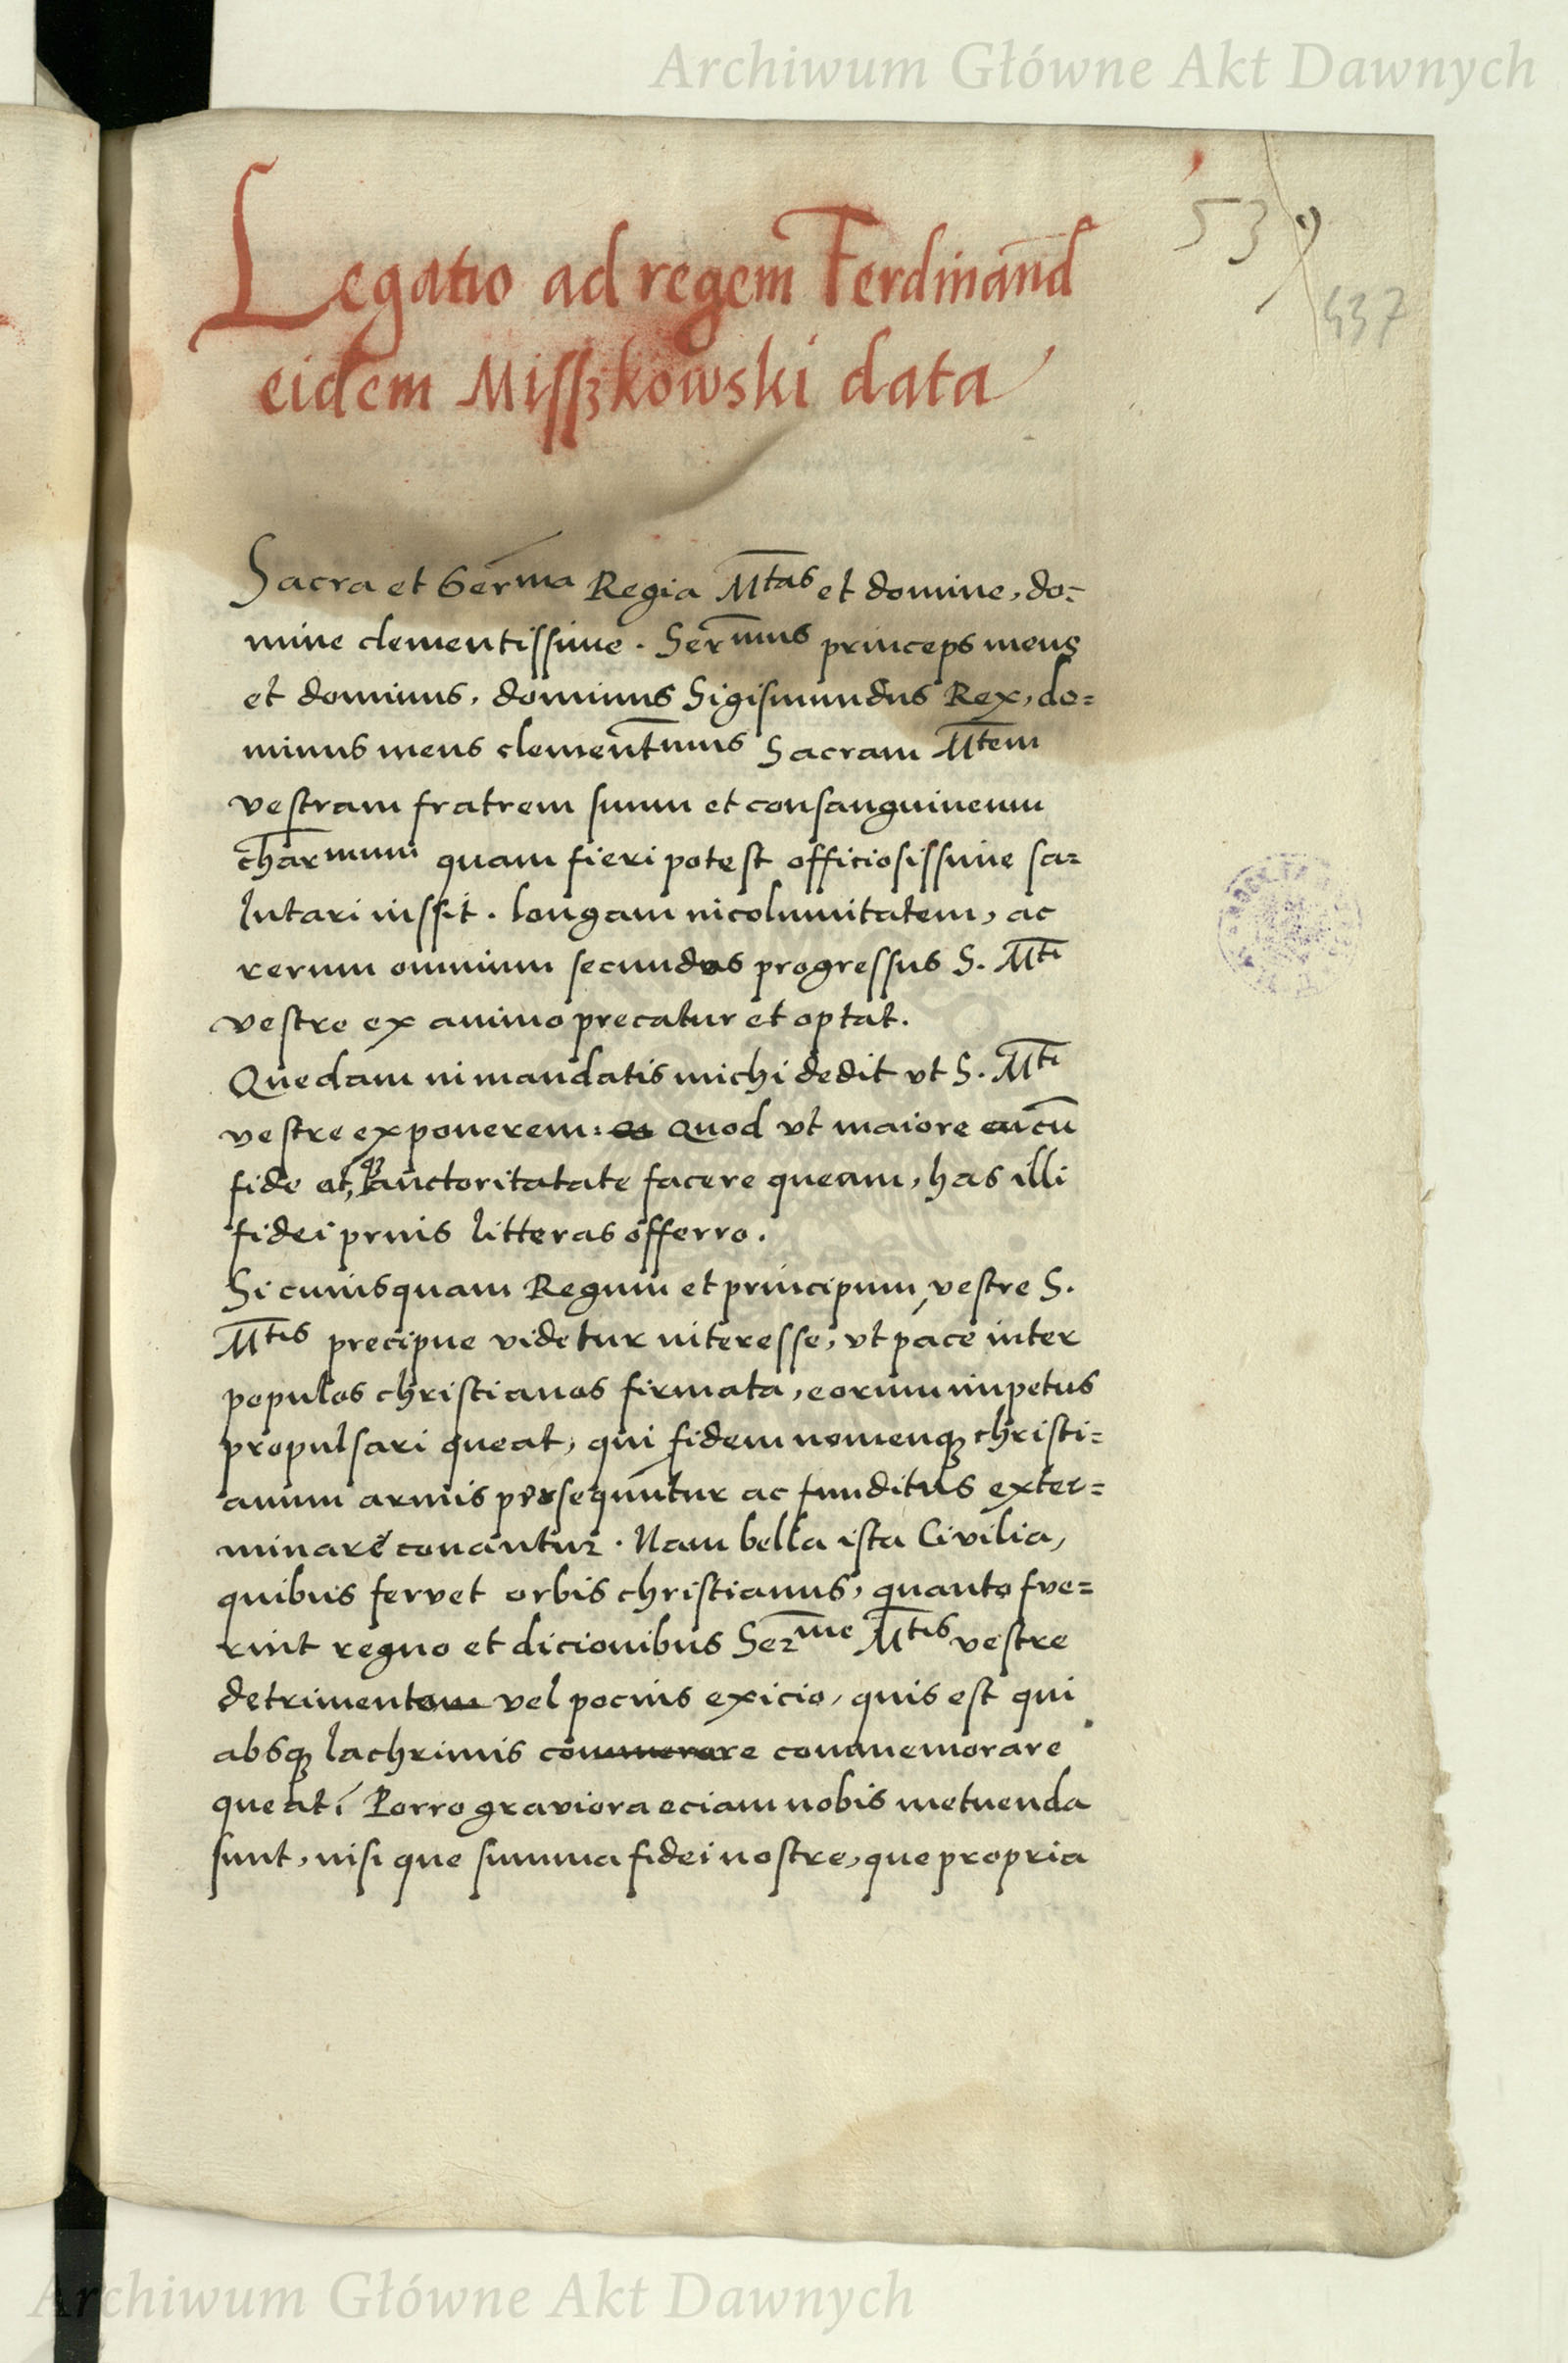 Archiwum Główne Akt Dawnych
539
437
Legatio ad regem Ferdinand
eidem Misszkowski data
Sacra et Serma Regia Mtas et domine, do=
mine clementissime. Sermus princeps meus
et dominus, dominus Sigismundus Rex, do=
minus meus clementmus Sacram Mtem
vestram fratrem suum et consanguineum
charmum quam fieri potest officiosissime sa=
lutari iussit. longam incolumitatem, ac
rerum omnium secundos progressus S. Mti
vestre ex animo precatur et optat.
Quedam in mandatis michi dedit vt S. Mti
vestre exponerem: Quod vt maiore cu
fide et auctoritatate facere queam, has illi
fidei prius litteras offerro.
Si cuiusquam Regum et principum, vestre S.
Mtis precipue videtur interesse, vt pace inter
populos christianos firmata, eorum impetus
propulsari queat, qui fidem nomenq christi=
anum armis persequuntur ac funditus exter=
minare conantur. Nam bella ista Civilia,
quibus fervet orbis christianus, quanto fue=
rint regno et dicionibus Serme Mtis vestre
detriment vel pocius exicio, quis est qui
absq lachrimis commemorare
queat? Porro graviora eciam nobis metuenda
sunt, nisi que summa fidei nostre, que propria
Archiwum Główne Akt Dawnych